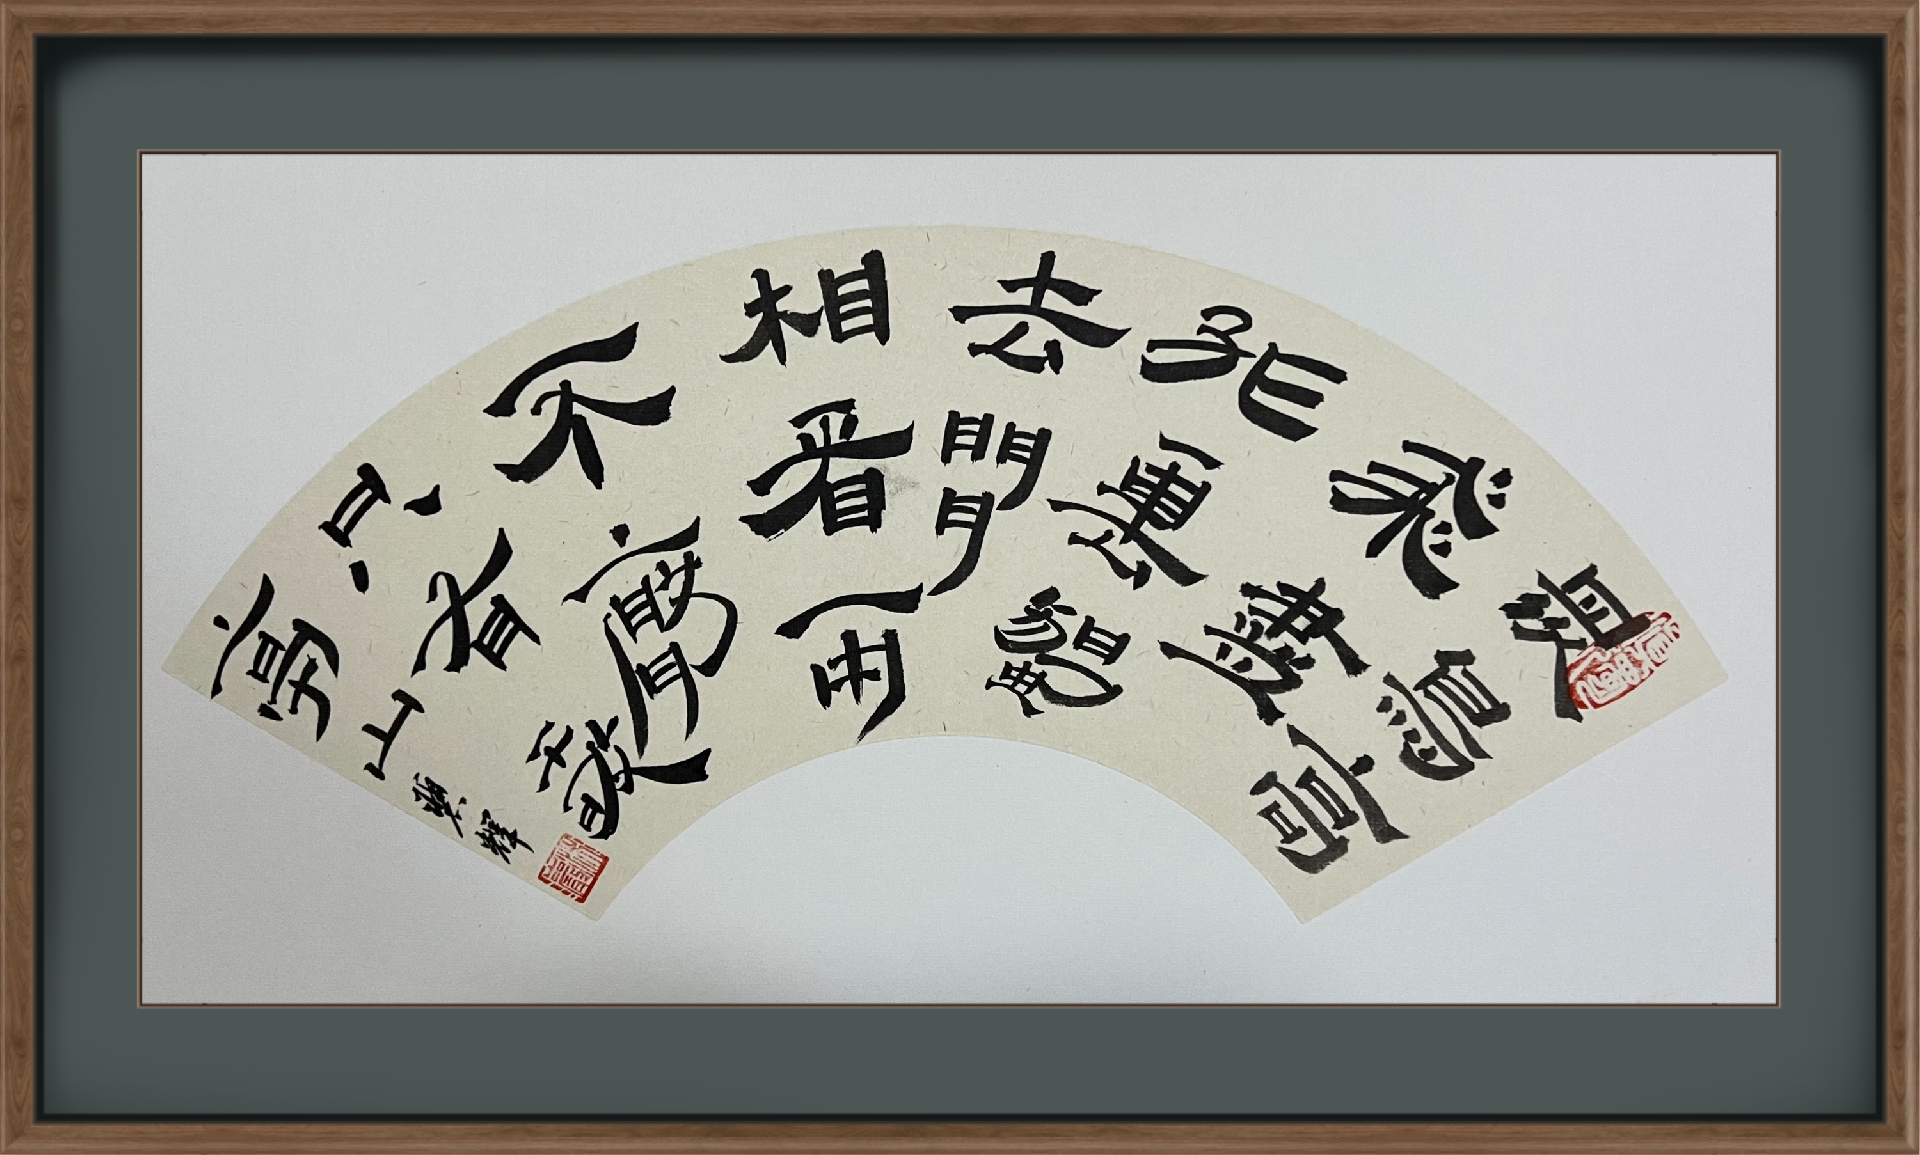 眾鳥高
飛盡
孤雲獨
去閒
相看兩
不厭
只有敬
亭山